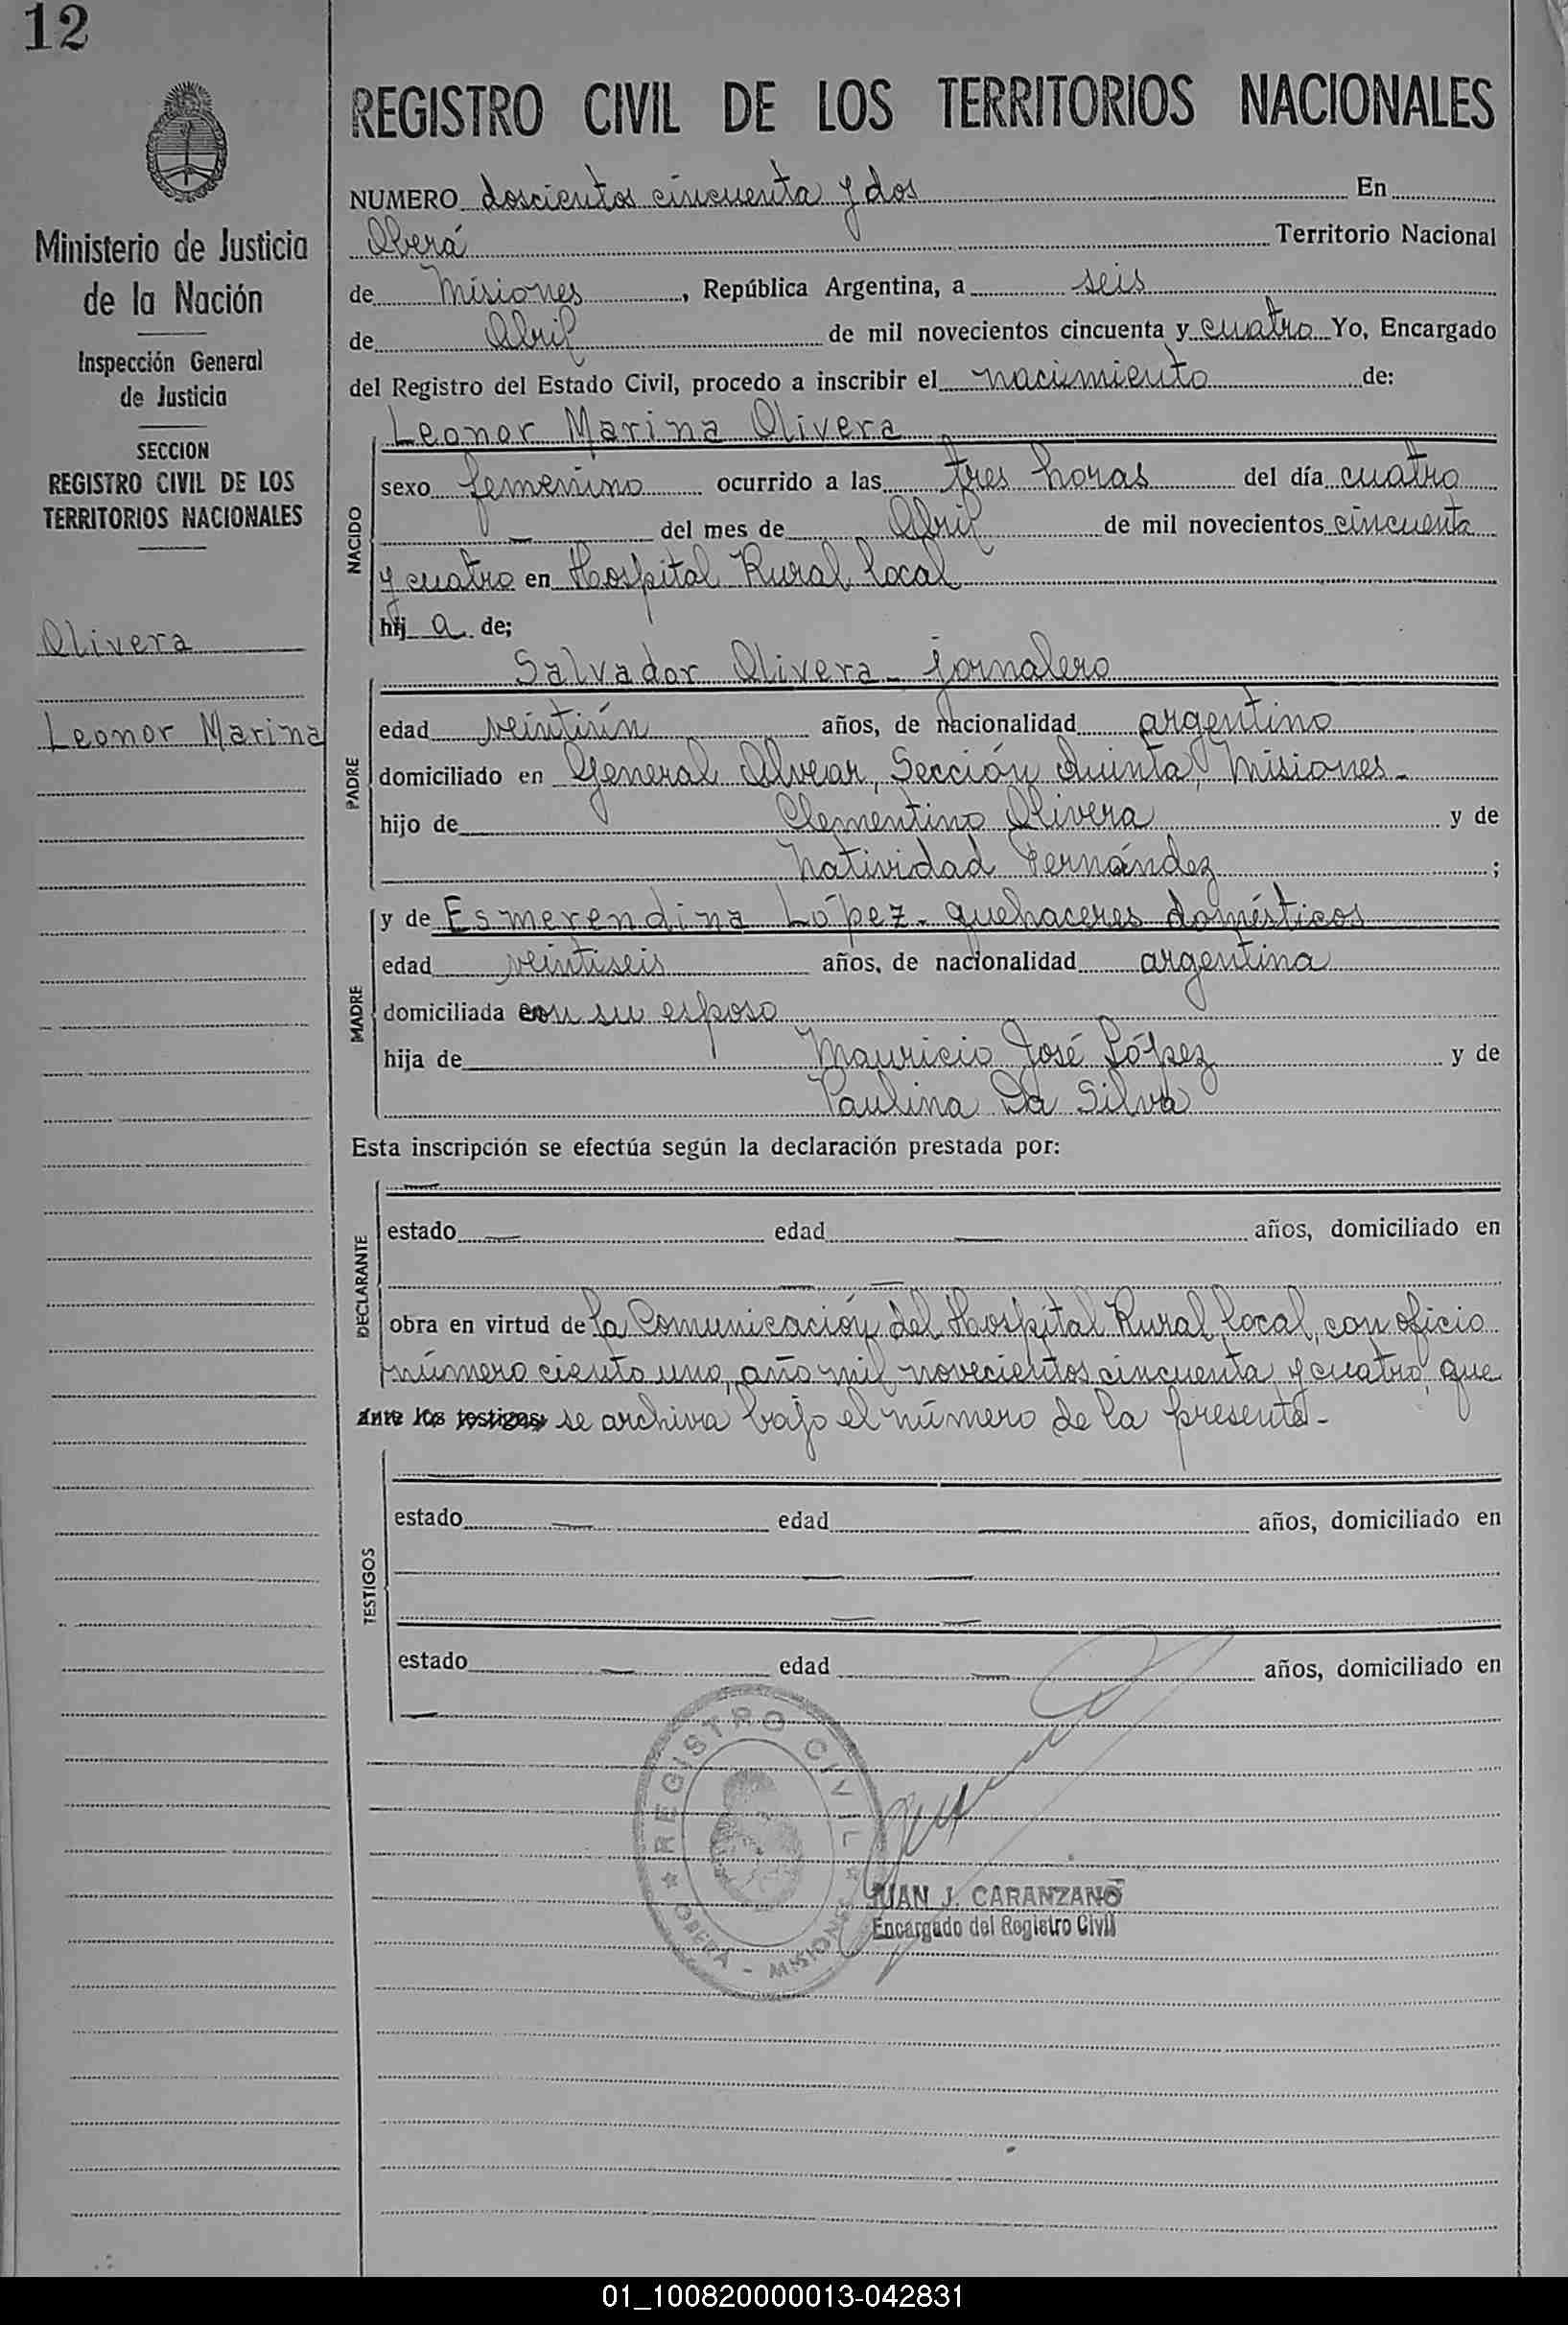 12
REGISTRO CIVIL DE LOS TERRITORIOS NACIONALES
Ministerio de Justicia
de la Nación
Inspección General
de Justicia
SECCION
REGISTRO CIVIL DE LOS
TERRITORIOS NACIONALES
Olivera
Leonor Marina
NUMERO doscientos cincuenta y dos En
Oberá Territorio Nacional
de Misiones, República Argentina, a seis
de Abril de mil novecientos cincuenta y cuatro Yo, Encargado
del Registro del Estado Civil, procedo a inscribir el nacimiento de:
NACIDO
Leonor Marina Olivera
sexo femenino ocurrido a las tres horas del día cuatro
— del mes de Abril de mil novecientos cincuenta
y cuatro en Hospital Rural local
hij a de;
PADRE
Salvador Olivera - jornalero
edad veintiún años, de nacionalidad argentino
domiciliado en General Alvear, Sección Quinta, Misiones -
hijo de Clementino Olivera y de
Natividad Fernández ;
MADRE
y de Esmerendina López - quehaceres domésticos
edad veintiseis años, de nacionalidad argentina
domiciliada con su esposo
hija de Mauricio José López y de
Paulina Da Silva
Esta inscripción se efectúa según la declaración prestada por:
DECLARANTE
—
estado — edad — años, domiciliado en
— —
obra en virtud de la Comunicación del Hospital Rural local, con oficio
número ciento uno, año mil novecientos cincuenta y cuatro, que
ante los testigos: se archiva bajo el número de la presente -
TESTIGOS
—
estado — edad — años, domiciliado en
— —
— —
estado — edad — años, domiciliado en
—
REGISTRO CIVIL
OBERA - MISIONES
JUAN J. CARANZANO
Encargado del Registro Civil
01_100820000013-042831